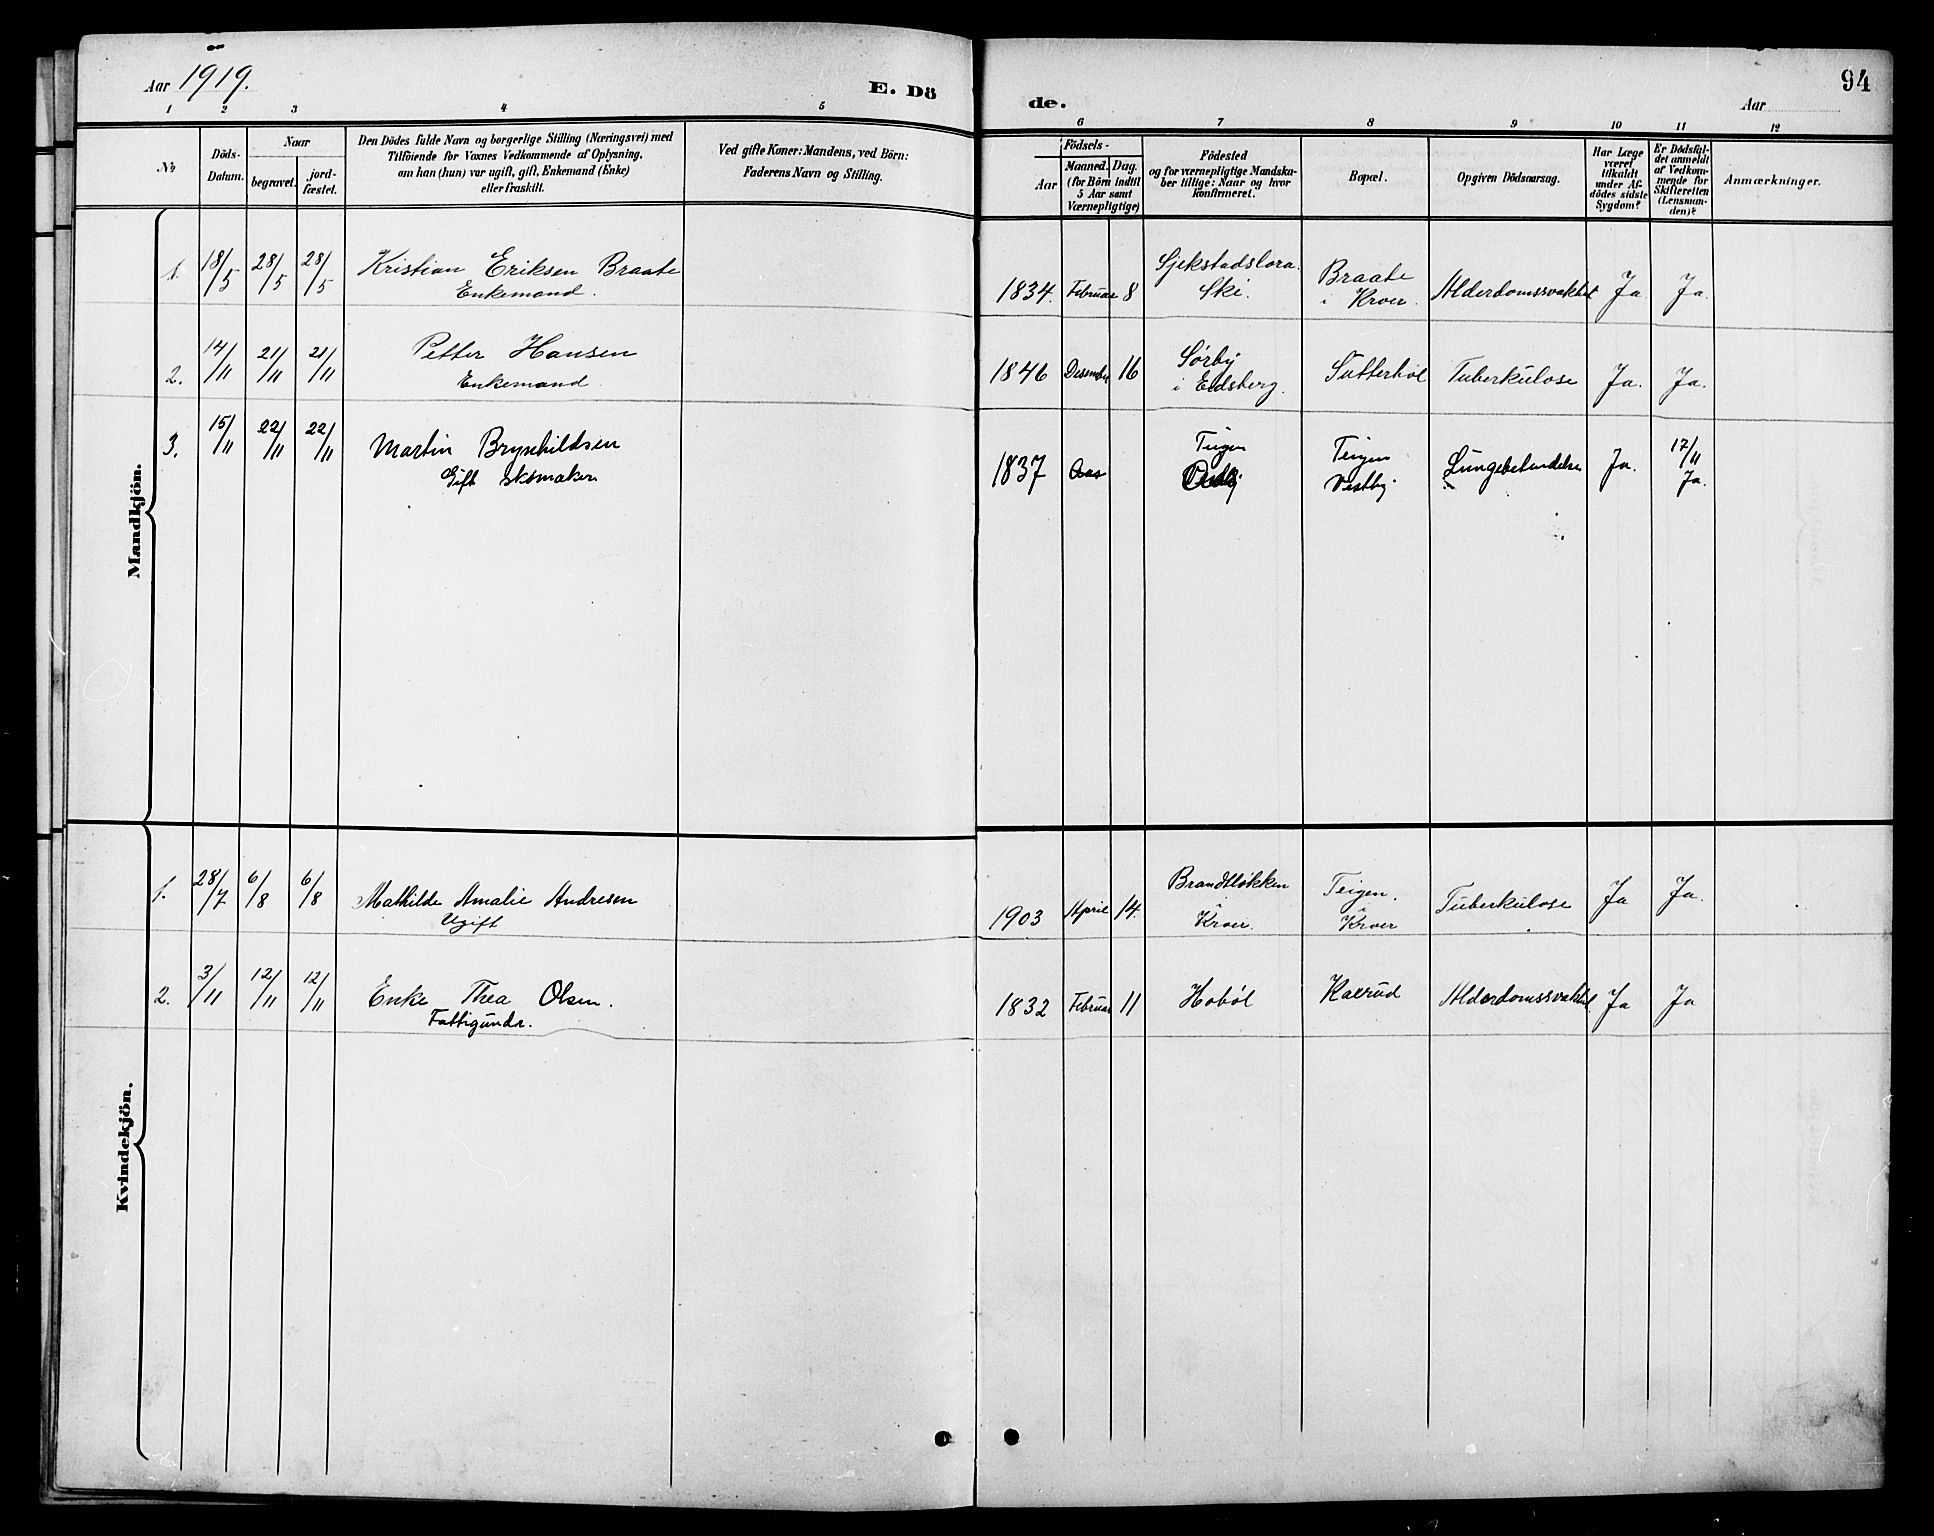 Aar 1919.
E. Dö
de.
Aar
94
1 2 3 4 5 6 7 8 9 10 11 12
No
Döds-Datum.
Naar
begravet.
jord-fæstet.
Den Dödes fulde Navn og borgerlige Stilling (Næringsvei) med
Tilföiende for Voxnes Vedkommende af Oplysning,
om han (hun) var ugift, gift, Enkemand (Enke)
eller fraskilt.
Ved gifte Koner: Mandens, ved Börn:
Faderens Navn og Stilling.
Födsels-
Aar
Maaned. Dag.
(for Börn indtil
5 Aar samt
Værnepligtige)
Födested
og for værnepligtige Mandska-
ber tillige: Naar og hvor
konfirmeret.
Bopæl.
Opgiven Dödsaarsag.
Har Læge
været
tilkaldt
under Af-
dödes sidste
Sygdom?
Er Dödsfal-
det anmeldt
af Vedkom-
mende for
Skifteretten
(Lensman-
den)?
Anmærkninger.
Mandkjön.
1. 18/5 28/5 28/5 Kristian Eriksen Braate
Enkemand.
1834. Februar 8
Ski.
Braate
i Kroer.
Alderdomssvakhet Ja Ja.
2. 14/11 21/11 21/11 Petter Hansen
Enkemand
1846 Desember 16 Sørby
i Eidsberg.
Sutterhol Tuberkulose Ja. Ja.
3. 15/11 22/11 22/11 Martin Brynhildsen
Gift skomaker
1837 Aas Teigen
Teigen
Vestby
Lungebetendelse Ja. 17/11
Ja.
Kvindekjön.
1. 28/7 6/8 6/8 Mathilde Amalie Andresen
Ugift
1903 April 14. Brandtløkken
i
Kroer.
Teigen.
i
Kroer
Tuberkulose Ja Ja.
2. 3/11 12/11 12/11 Enke Thea Olsen.
Fattigunds.
1832 Februar 11 Hobøl Kaerud Alderdomssvakhet. Ja Ja